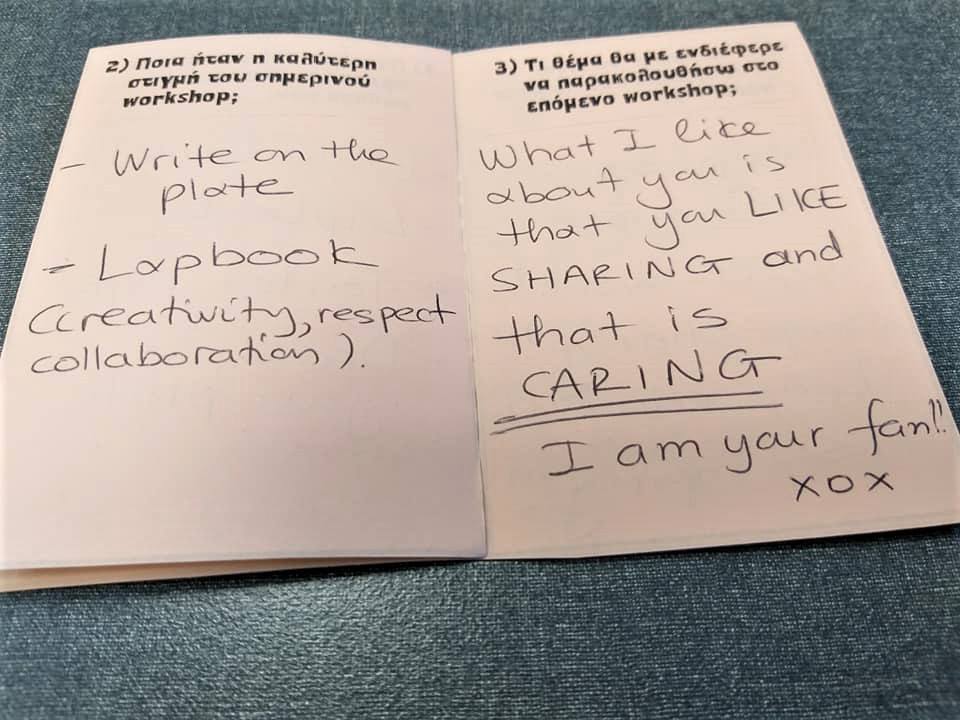 2) Ποια ήταν η καλύτερη
στιγμή του σημερινού
workshop;
- Write on the
plate
- Lapbook
(creativity, respect
collaboration).
3) Τι θέμα θα με ενδιέφερε
να παρακολουθήσω στο
επόμενο workshop;
What I like
about you is
that you LIKE
SHARING and
that is
CARING
I am your fan!!
xox